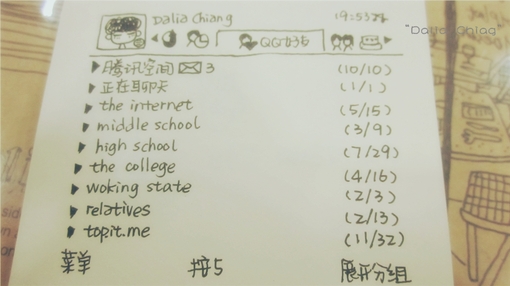 Dalia Chiang 19:53
"Dalia Chiang"
QQ好友
腾讯空间 3 (10/10)
正在聊天 (1/1)
the internet (5/15)
middle school (3/9)
high school (7/29)
the college (4/16)
woking state (2/3)
relatives (2/13)
topit.me (11/32)
菜单 按5 展开分组